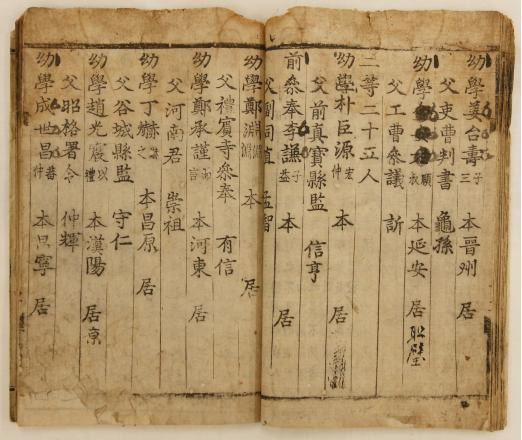 幼學姜台壽 子三 本晉州 居
父吏曹判書 龜孫
幼學 本延安 居
父工曹參議 訢
二等二十五人
幼學朴巨源 宏仲 本 居
父前真寶縣監 信亨
前參奉李謙 子益 本 居
父副司直 孟智
幼學鄭淵 本 居
父禮賓寺參奉 有信
幼學鄭承謹 本河東 居
父河南君 崇祖
幼學丁赫 本昌原 居
父谷城縣監 守仁
幼學趙光震 以禮 本漢陽 居京
父昭格署令 仲輝
幼學成世昌 蕃仲 本昌寧 居